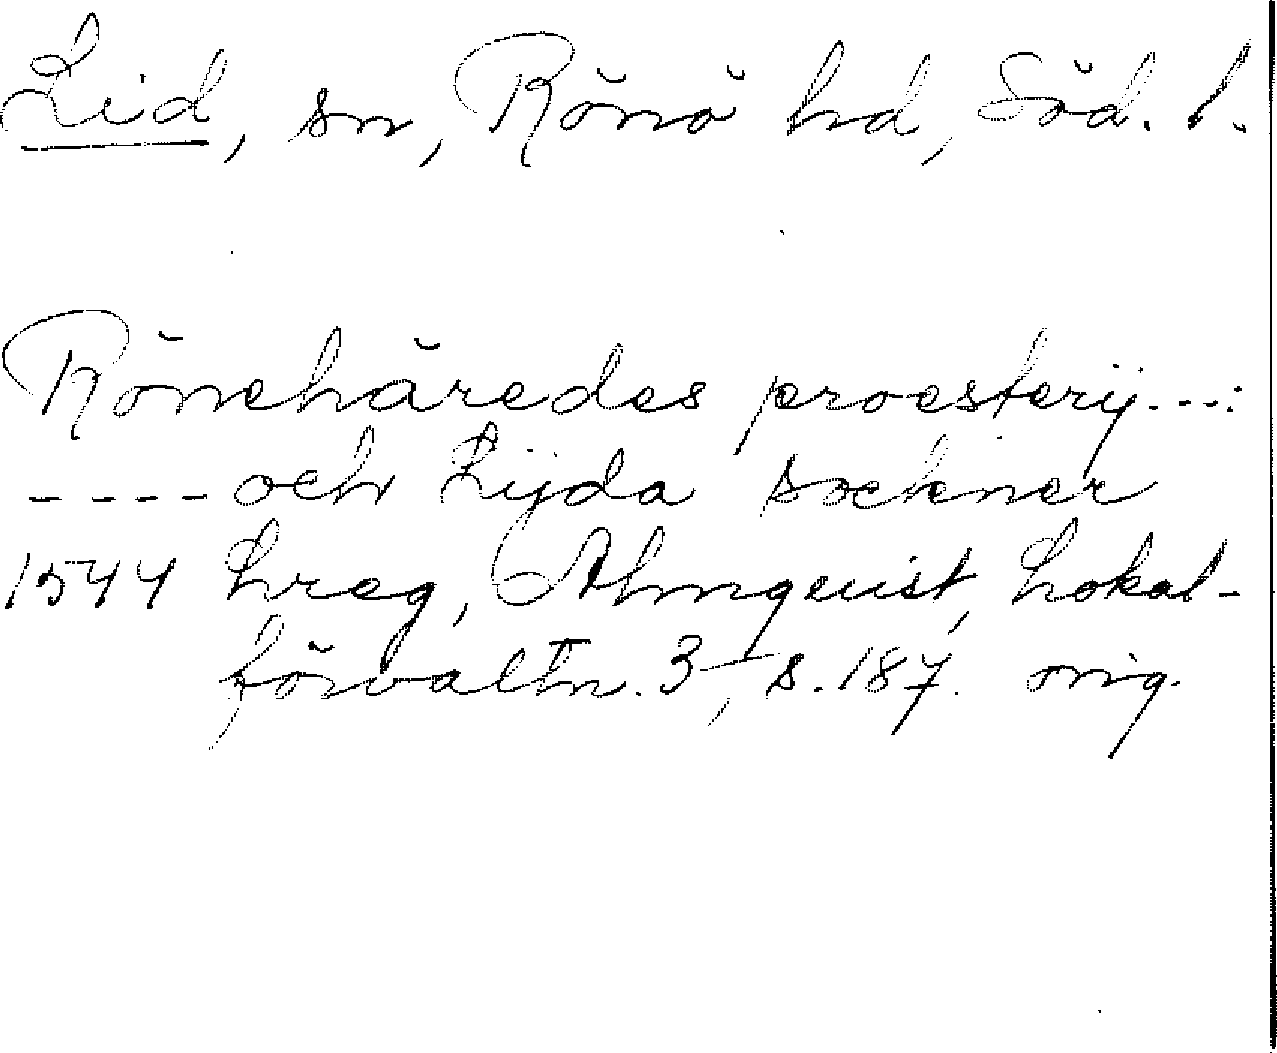 Lid, sn, Rönö hd, Söd. l.
Rönehäredes proesterij...:
---- och Lijda sockner
1544 Lreg, Almquist, Lokal-
förvaltn. 3, s. 187. orig.